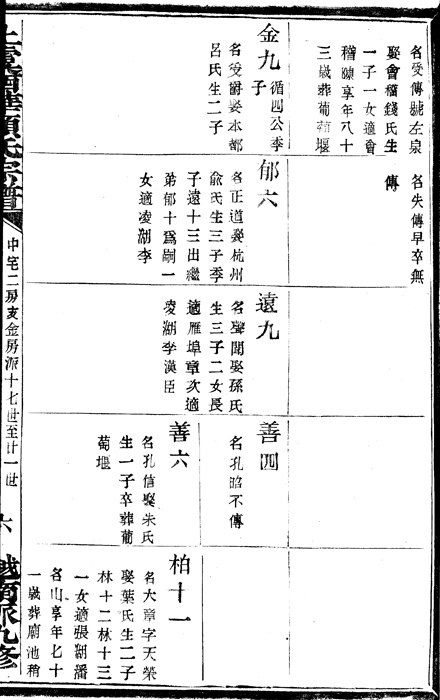 名受傳號左泉
娶會稽錢氏生
一子一女適會
稽陳享年八十
三歲葬葡萄堰
名失傳早卒無
傳
金九
循四公季
子
名受爵娶本郡
呂氏生二子
郁六
名正道娶杭州
俞氏生三子季
子遠十三出繼
弟郁十爲嗣一
女適凌湖李
遠九
名聲聞娶孫氏
生三子二女長
適雁埠章次適
凌湖李漢臣
善四
名孔昭不傳
善六
名孔信娶朱氏
生一子卒葬葡
萄堰
柏十一
名大章字天榮
娶葉氏生二子
林十二林十三
一女適張湖潘
名山享年七十
一歲葬廟池稍
項氏宗譜
中宅二房支金房派十七世至廿一世
六
項派九修